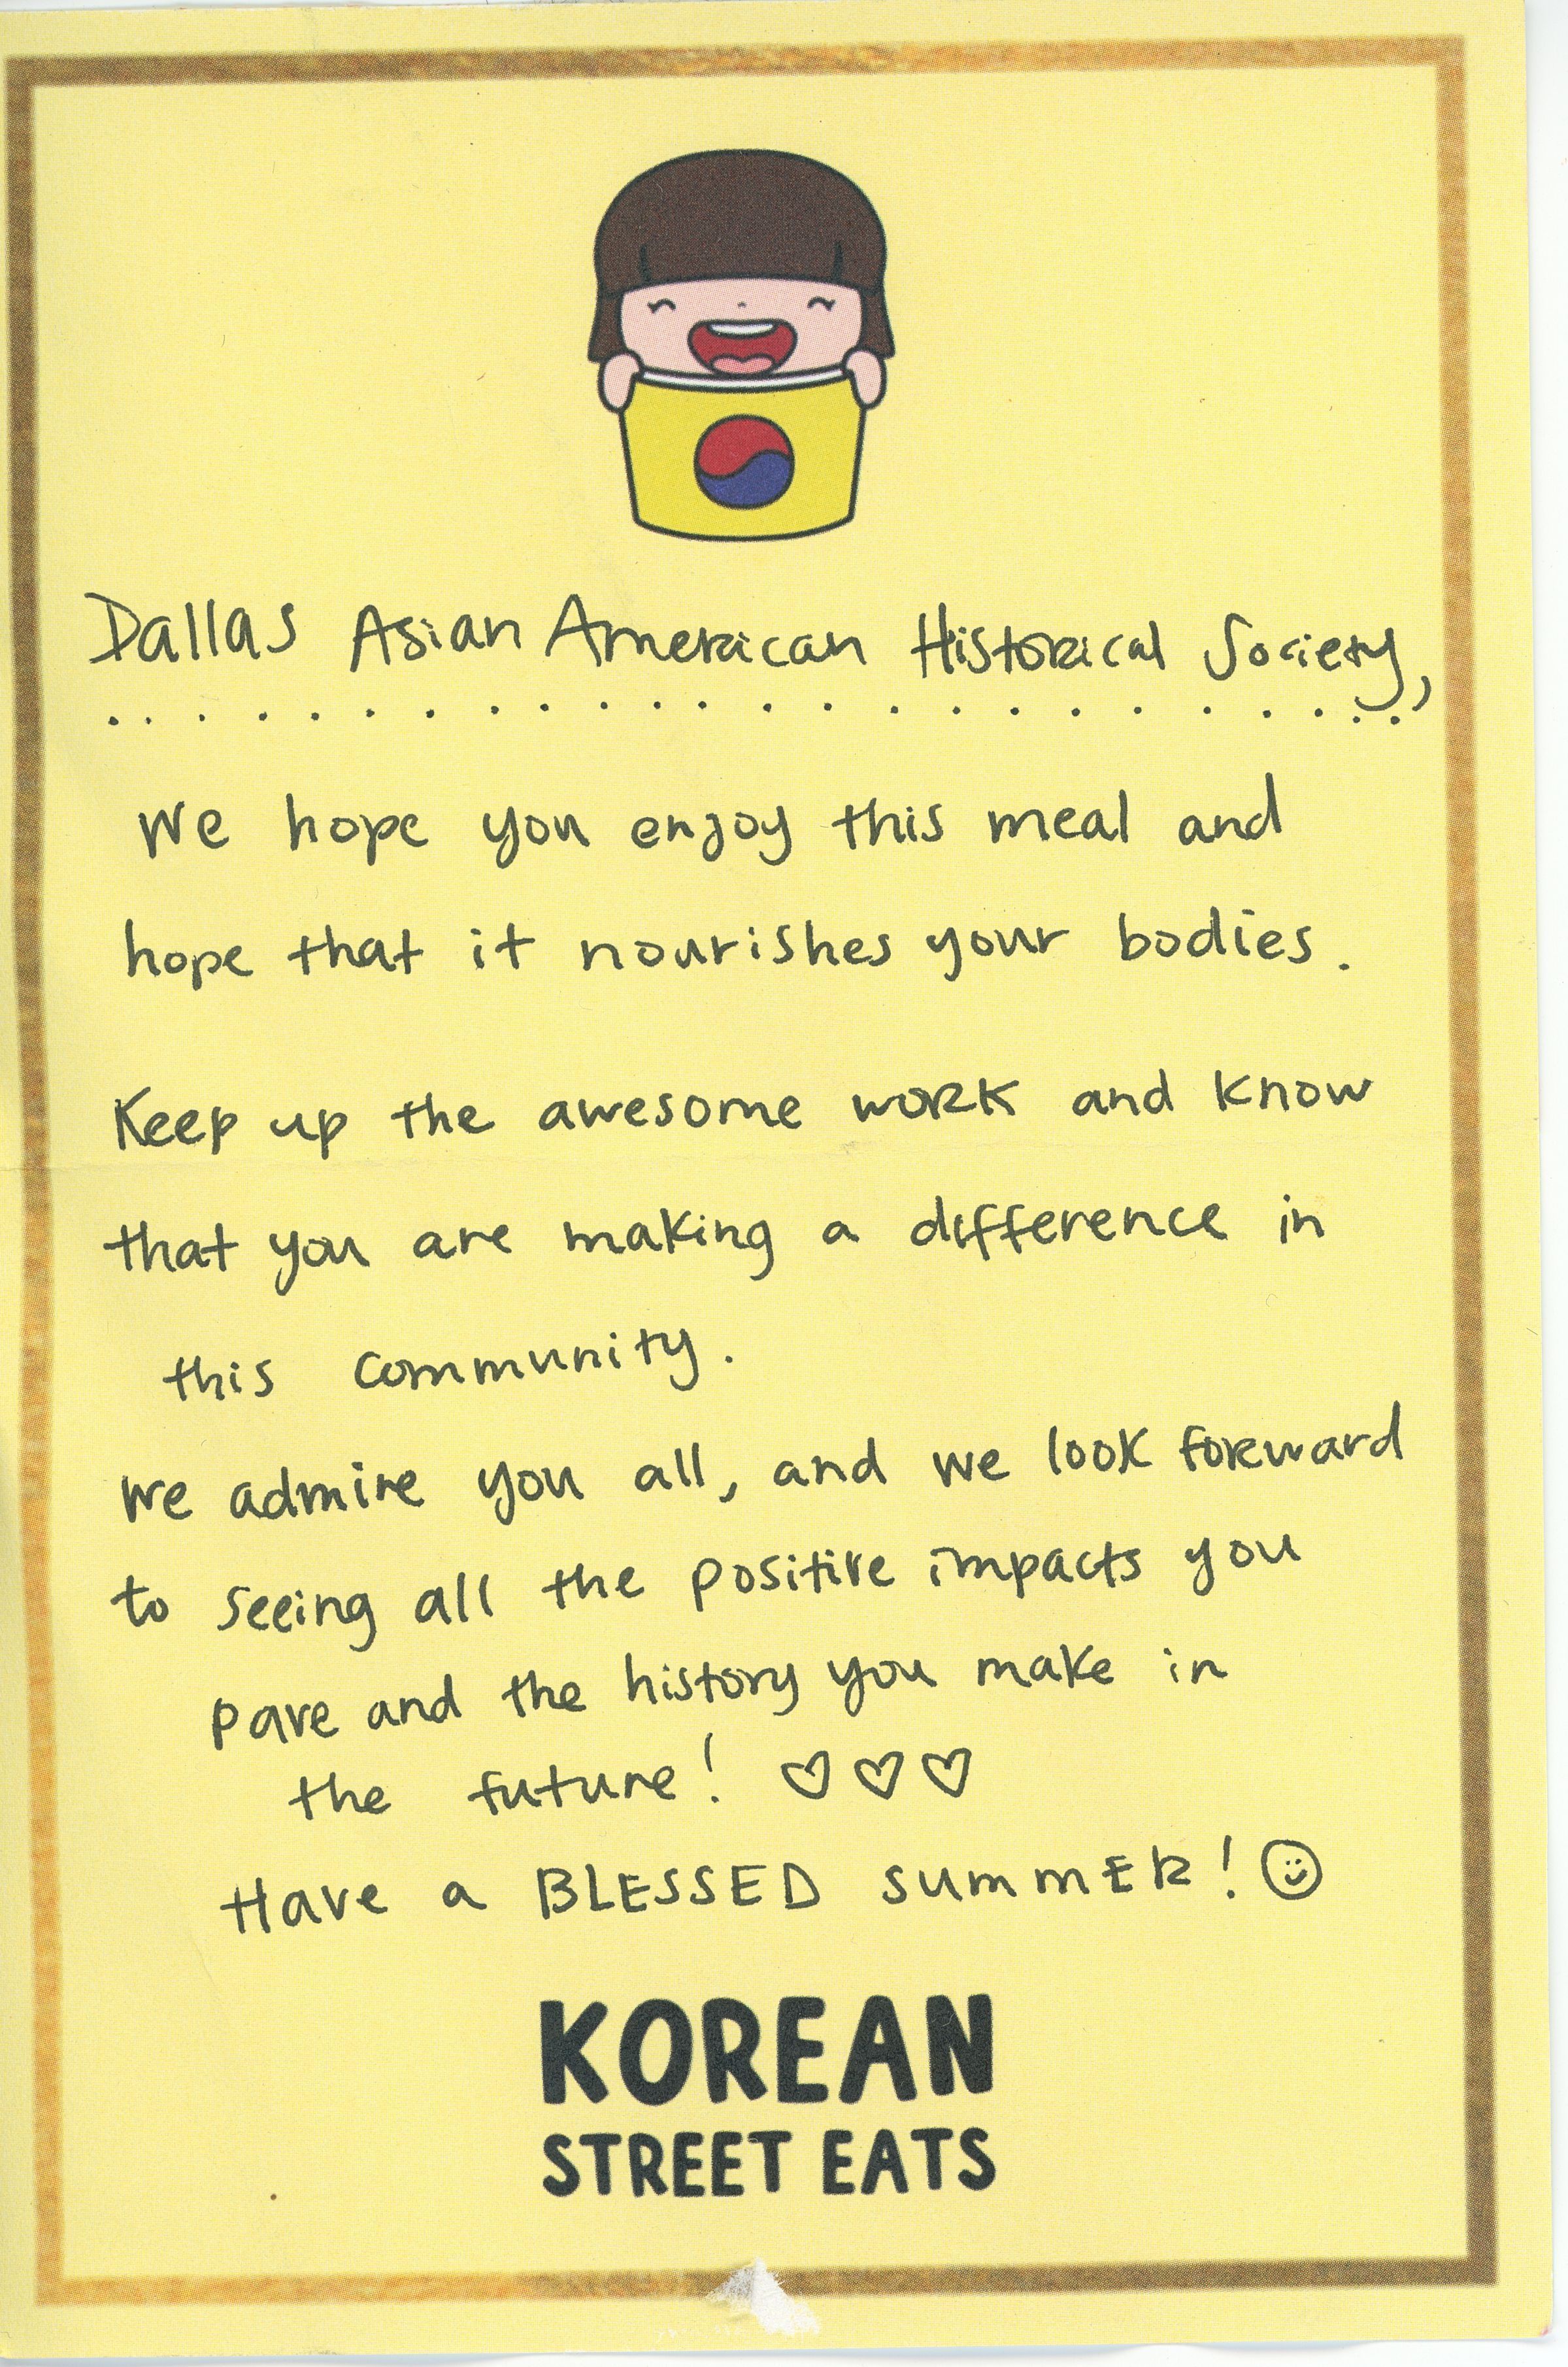 Dallas Asian American Historical Society,
We hope you enjoy this meal and
hope that it nourishes your bodies.
Keep up the awesome work and know
that you are making a difference in
this community.
We admire you all, and we look forward
to seeing all the positive impacts you
pave and the history you make in
the future! ♡♡♡
Have a BLESSED summER! ☺
KOREAN
STREET EATS